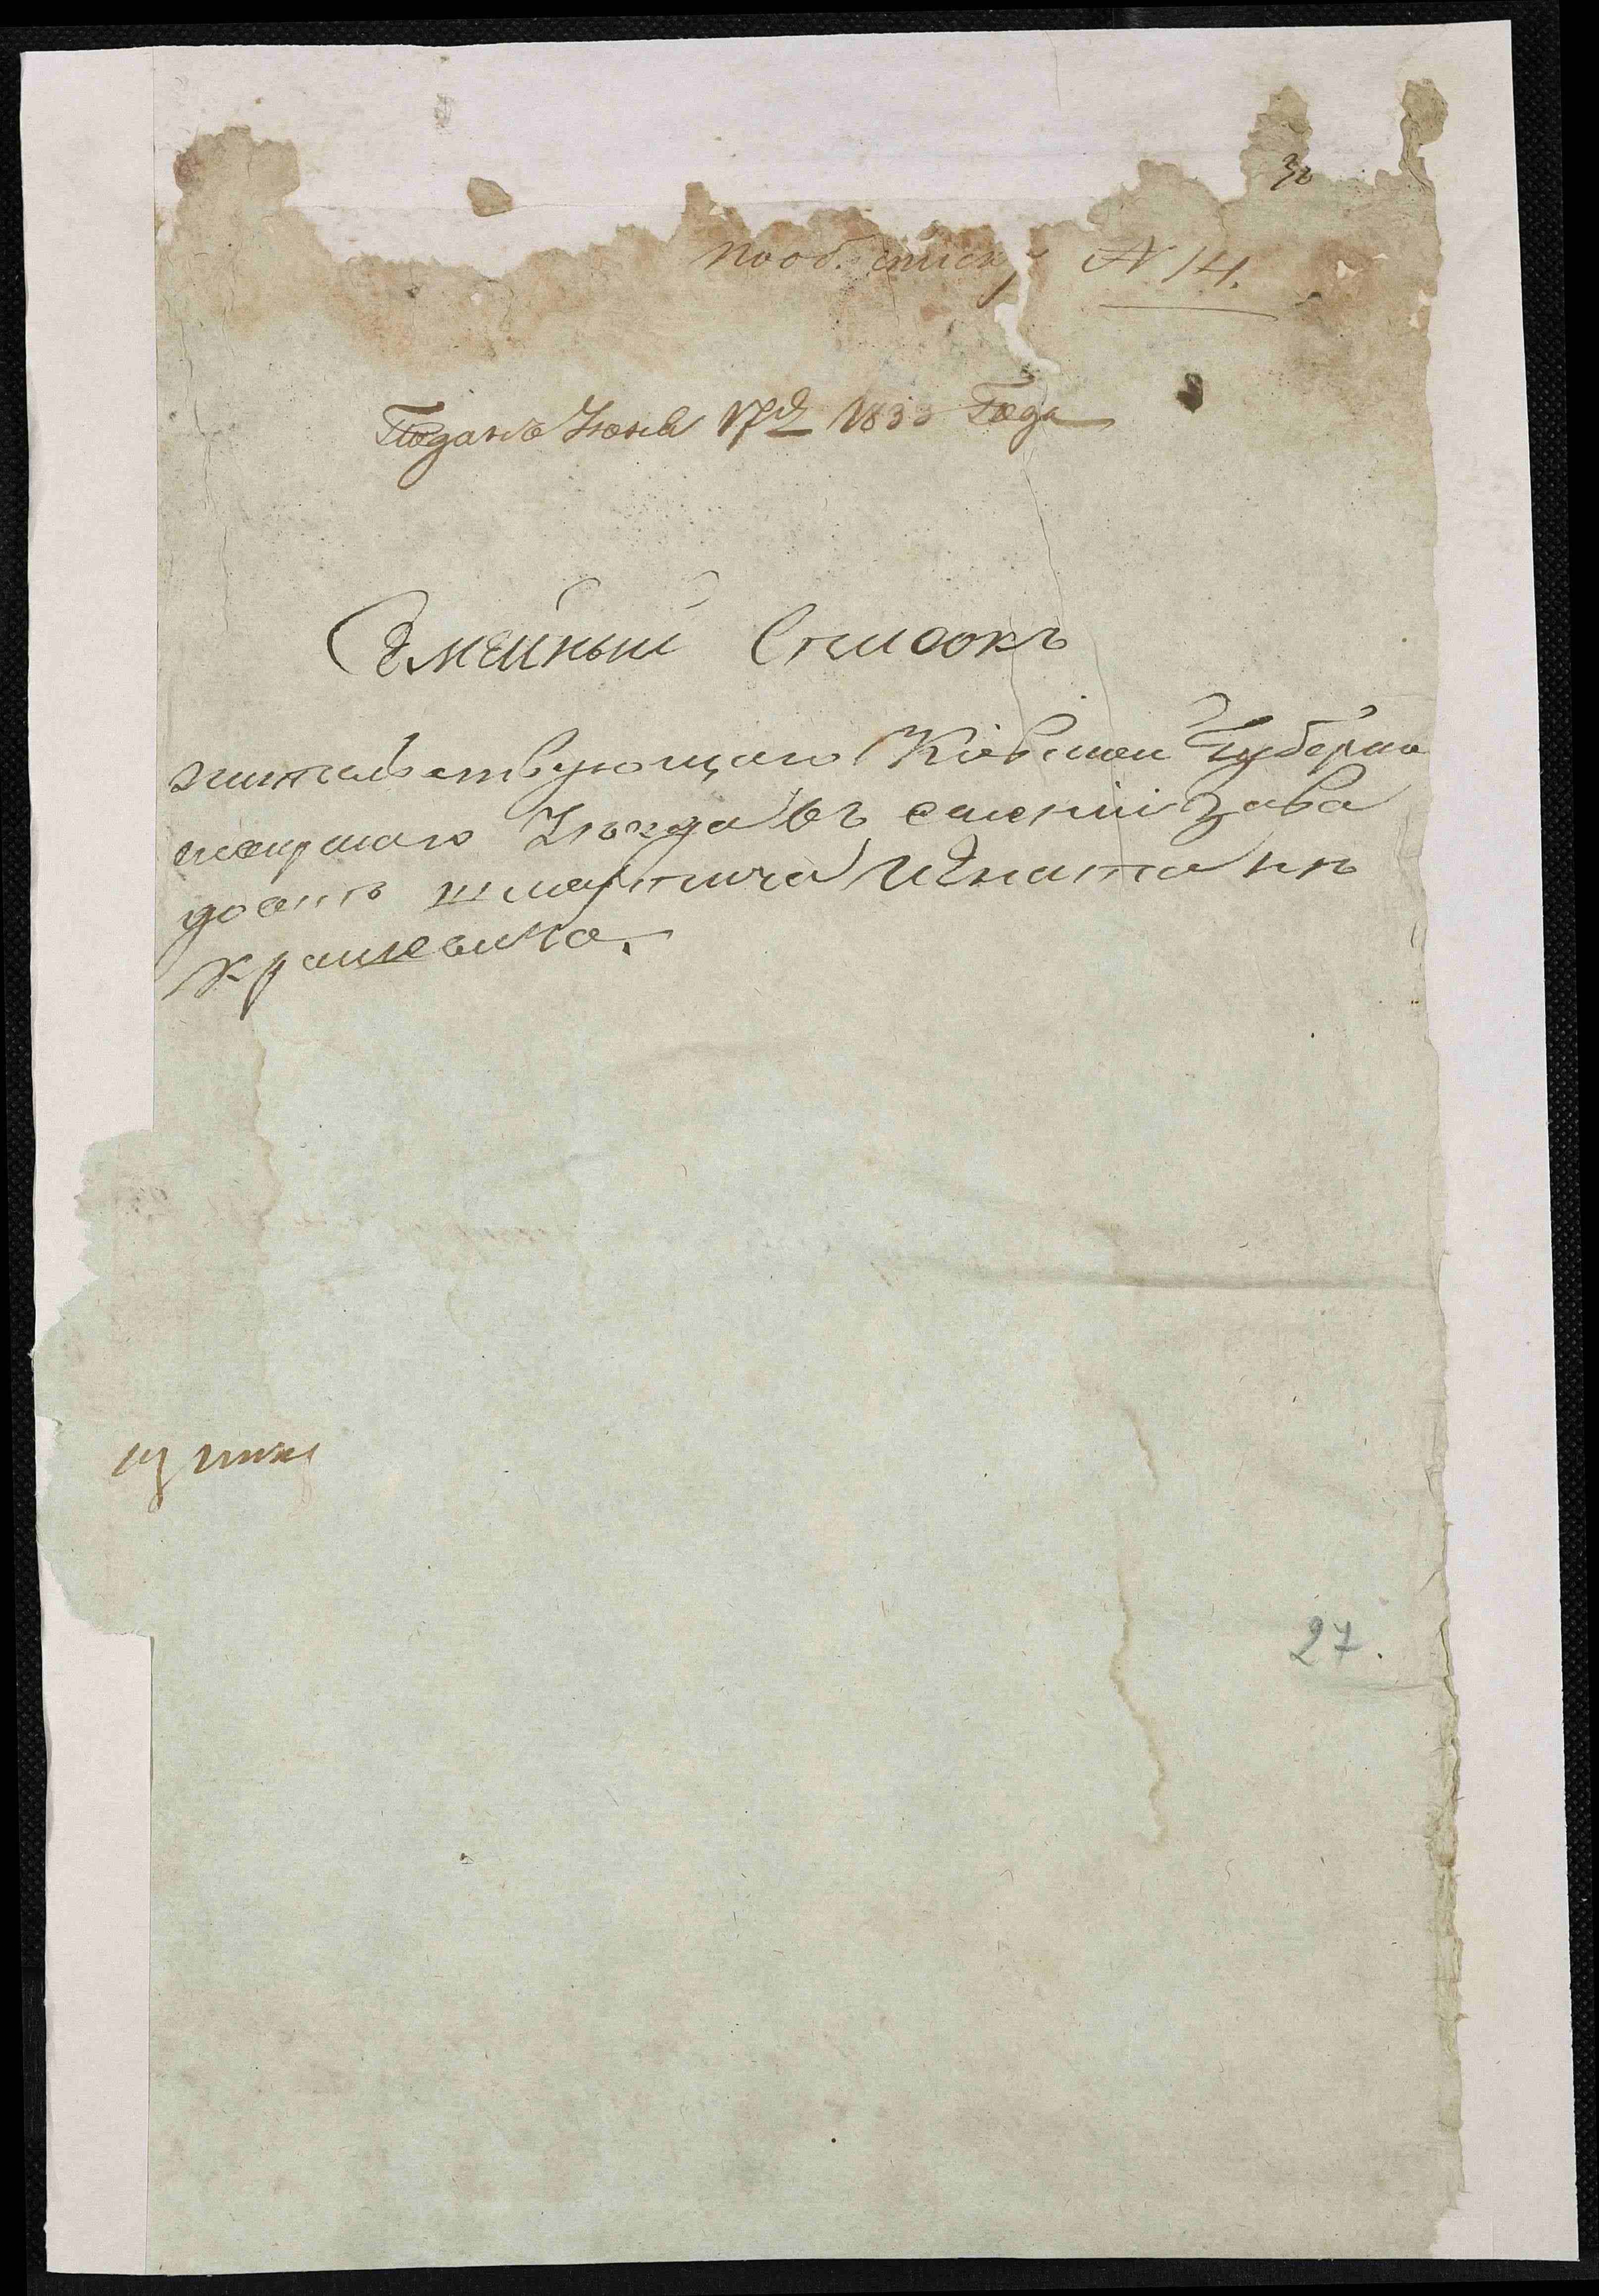 30
по об. списку № 14.
Поданъ Июня 17д 1833 Года
Семейный Списокъ
жительствующаго Кіевской Губерніи
сквирскаго Уѣзда въ селеніи Зава
доекъ шляхтича Игната
крашевска.
27.